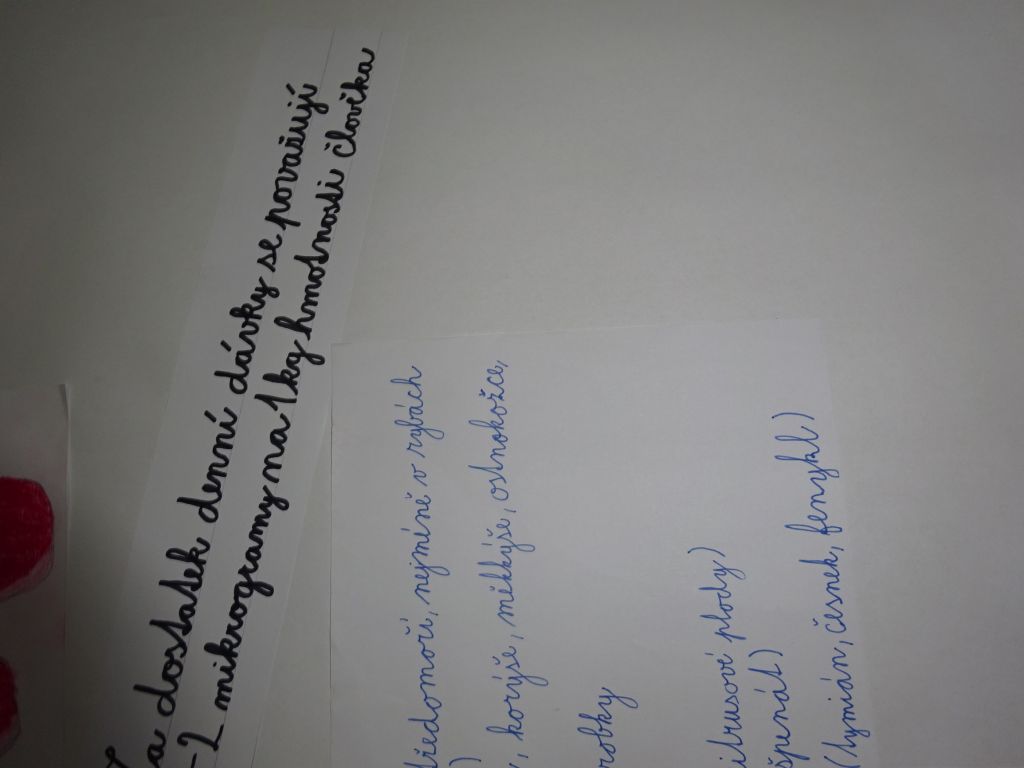 Za dostatek denní dávky se považují
-2 mikrogramy na 1kg hmotnosti člověka
středomoří, nejméně v rybách
)
, korýše, měkkýše, ostnokožce,
robky
itrusové plody)
špenát)
(tymián, česnek, fenykl)